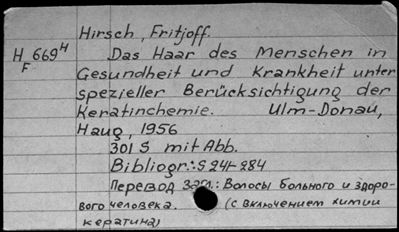 Hirsch, Fritjoff.
H 669 H
F
Das Haar des Menschen in
Gesundheit und Krankheit unter
spezieller Berücksichtigung der
Keratinchemie. Ulm-Donau,
Haug, 1956
301 S mit Abb.
Bibliogr.: S 241-284
Перевод загл.: Волосы больного и здоро-
вого человека. (с включением химии
кератина)